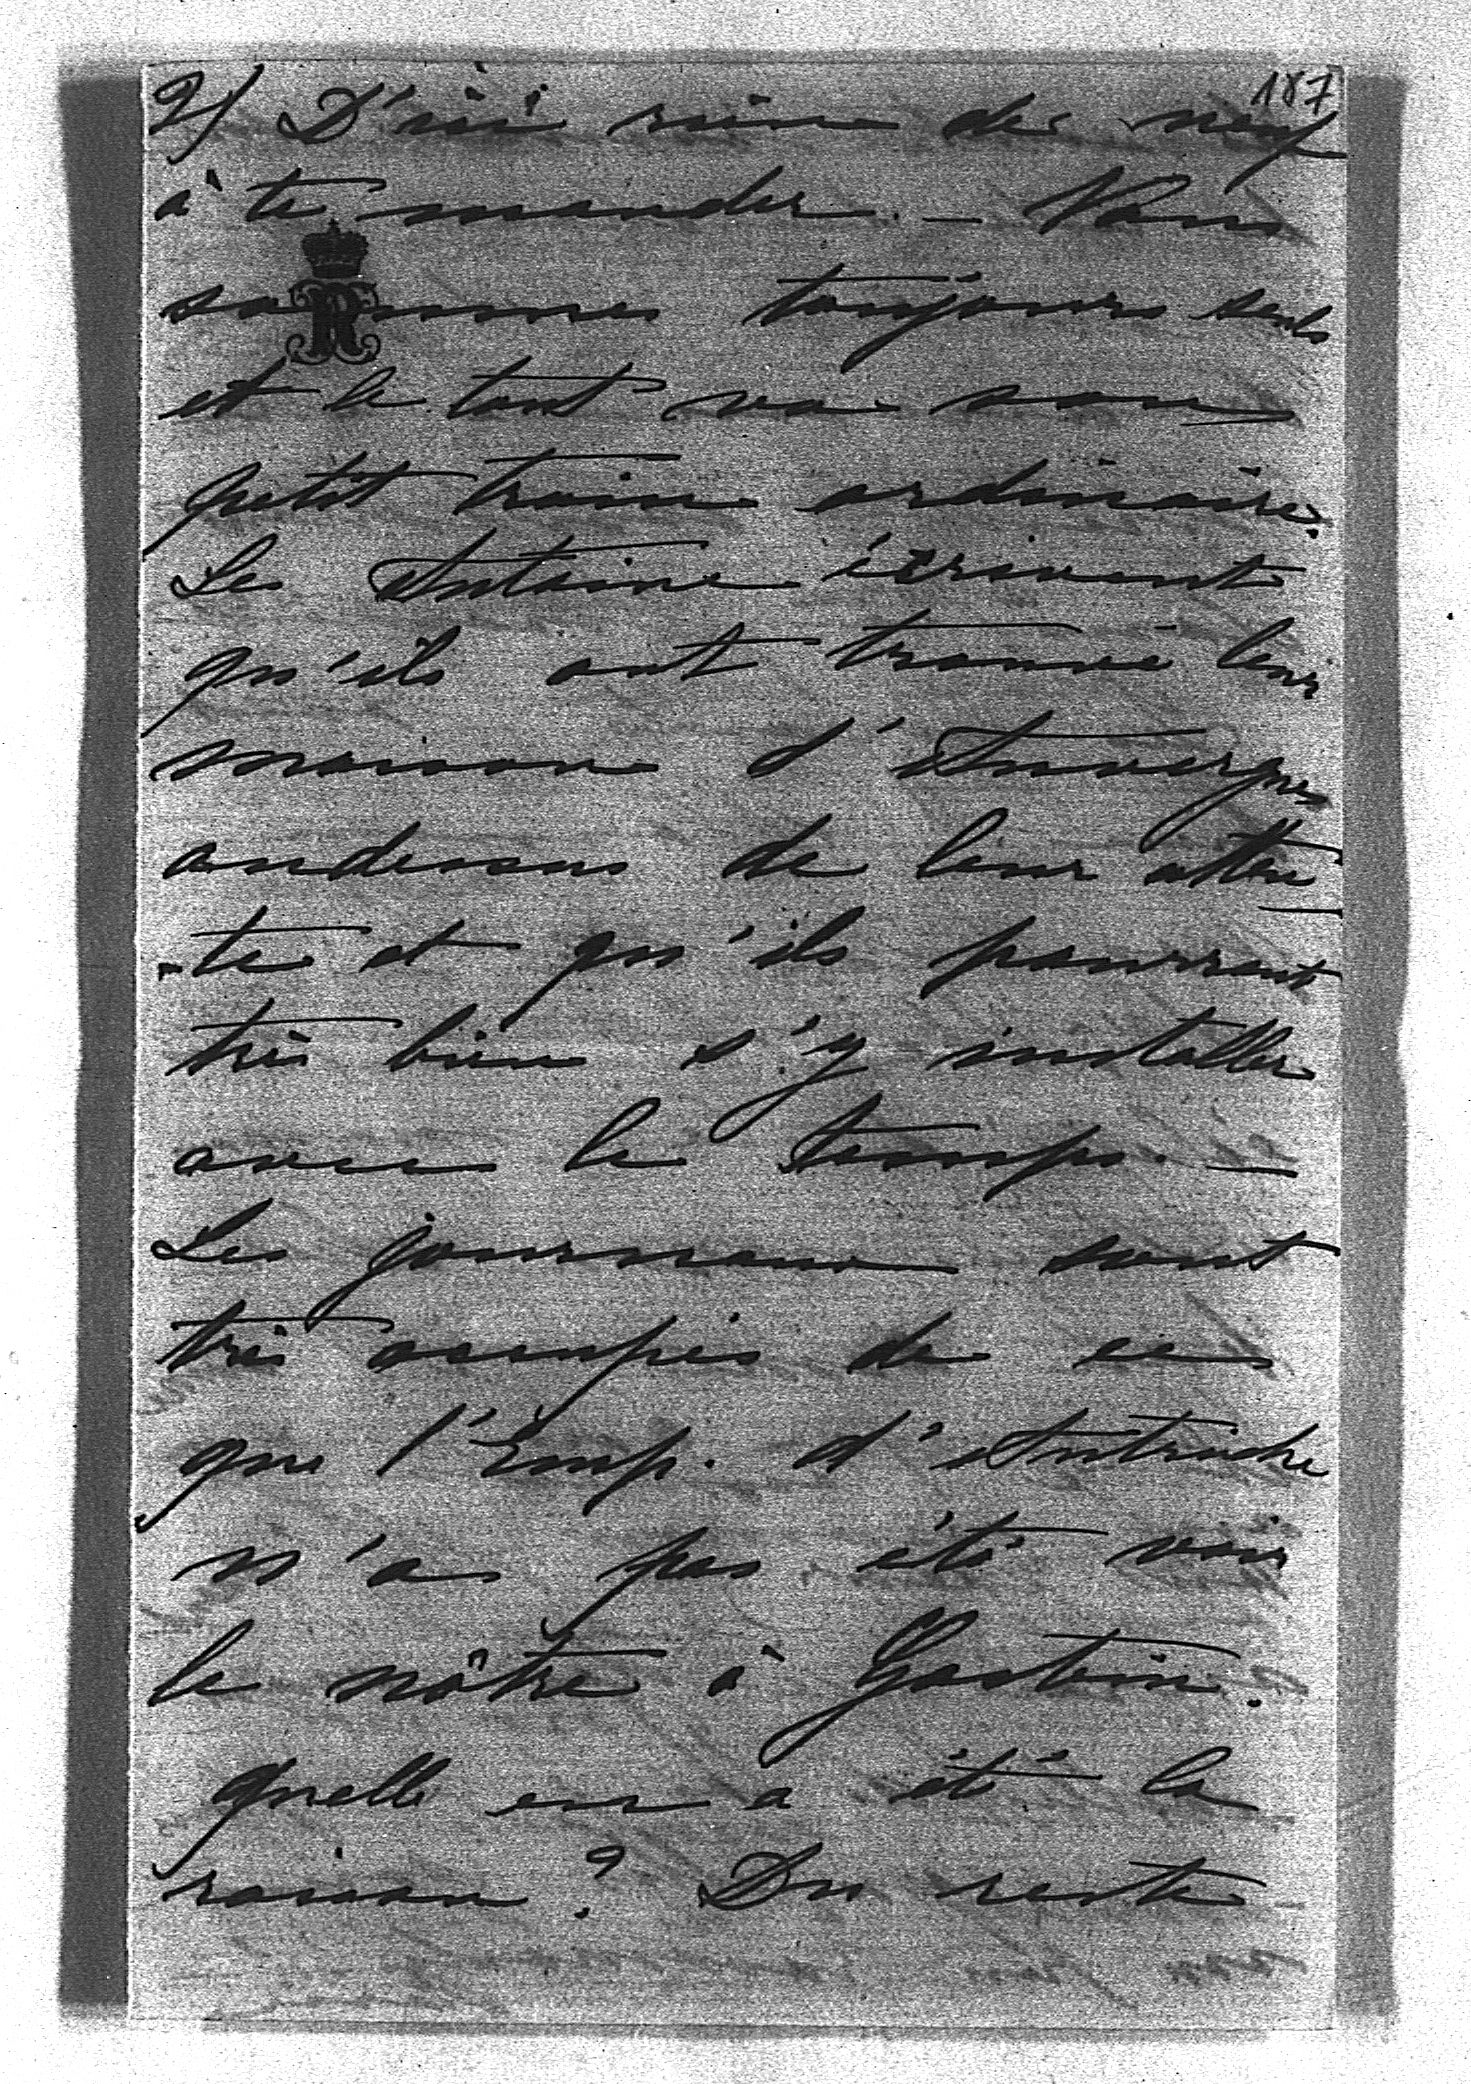 187
2/ D'ici rien de neuf
à te mander. – Nous
sommes toujours seuls
et le tout va son
petit train ordinaire.
Les Antoine écrivent
qu'ils ont trouvé leur
maison d'Anvergne
audessus de leur atten
-te et qu'ils pourront
très bien s'y installer
avec le temps. –
Les journaux sont
très occupés de ce
que l'Emp. d'Autriche
n'a pas été voir
le nôtre à Gastein.
quelle en a été la
raison? Du reste